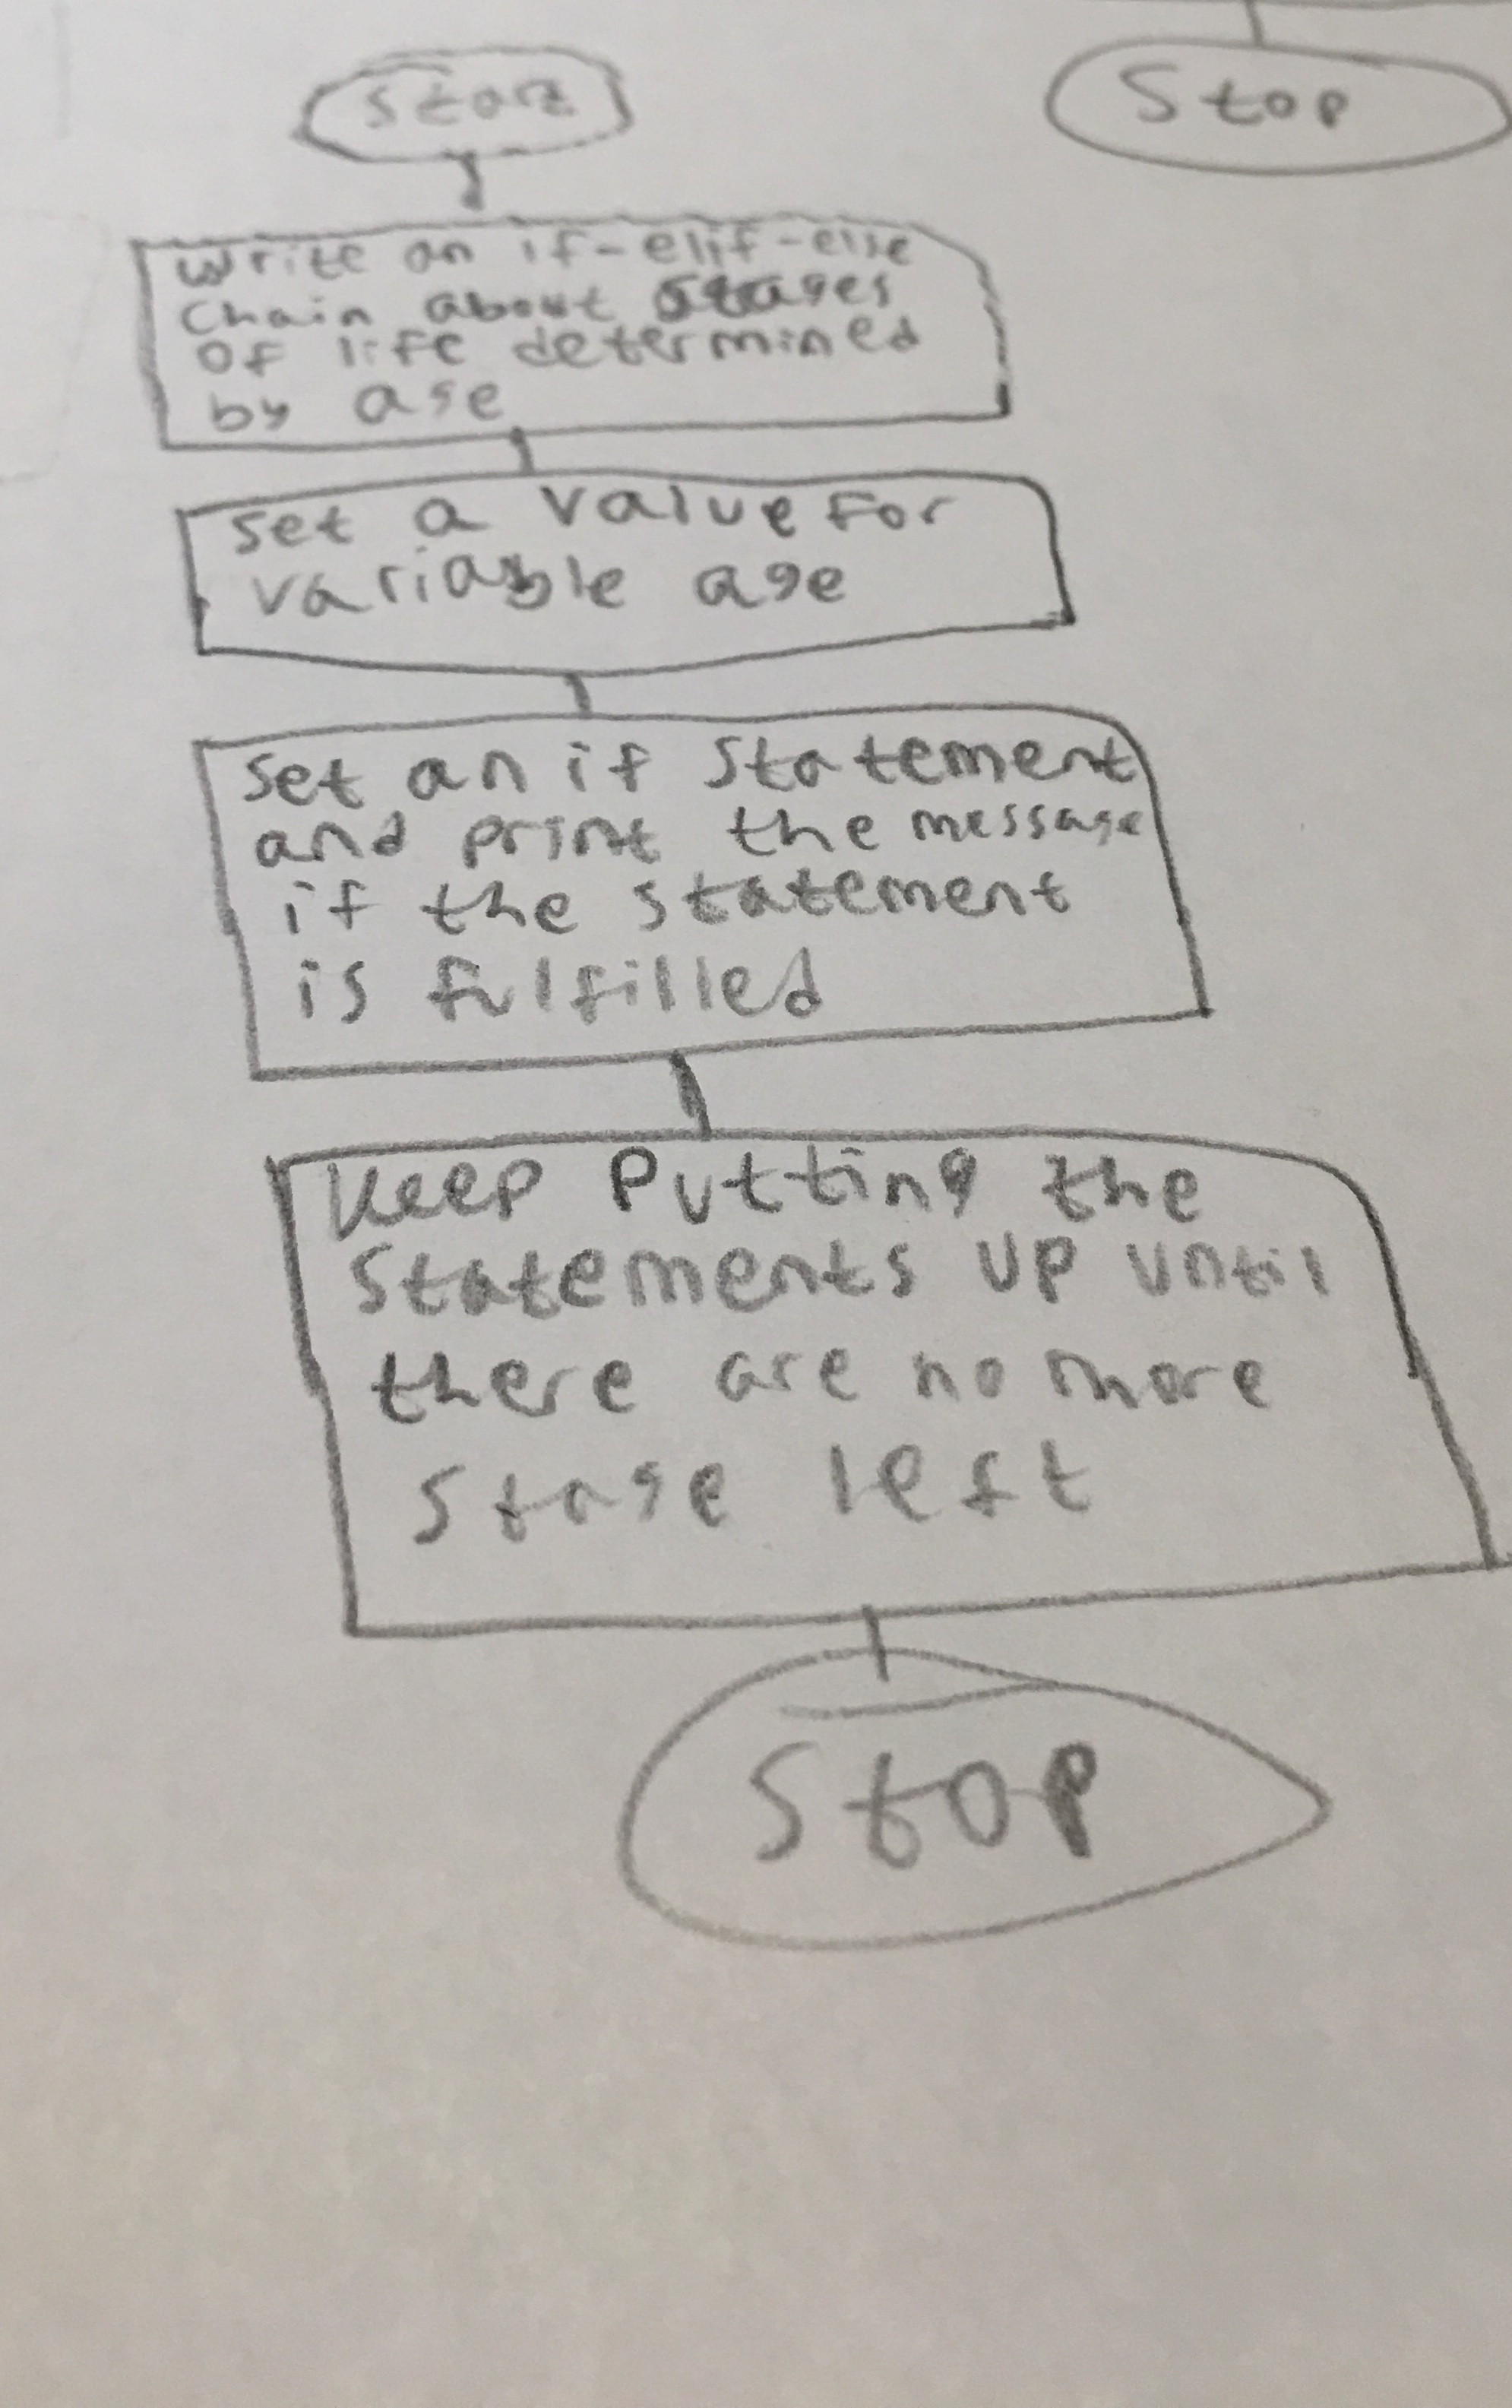 Start
Stop
Write an if-elif-else
Chain about stages
Of life determined
by age
Set a value for
variable age
Set an if statement
and print the message
if the statement
is fulfilled
Keep Putting the
Statements up until
there are no more
Stage left
Stop